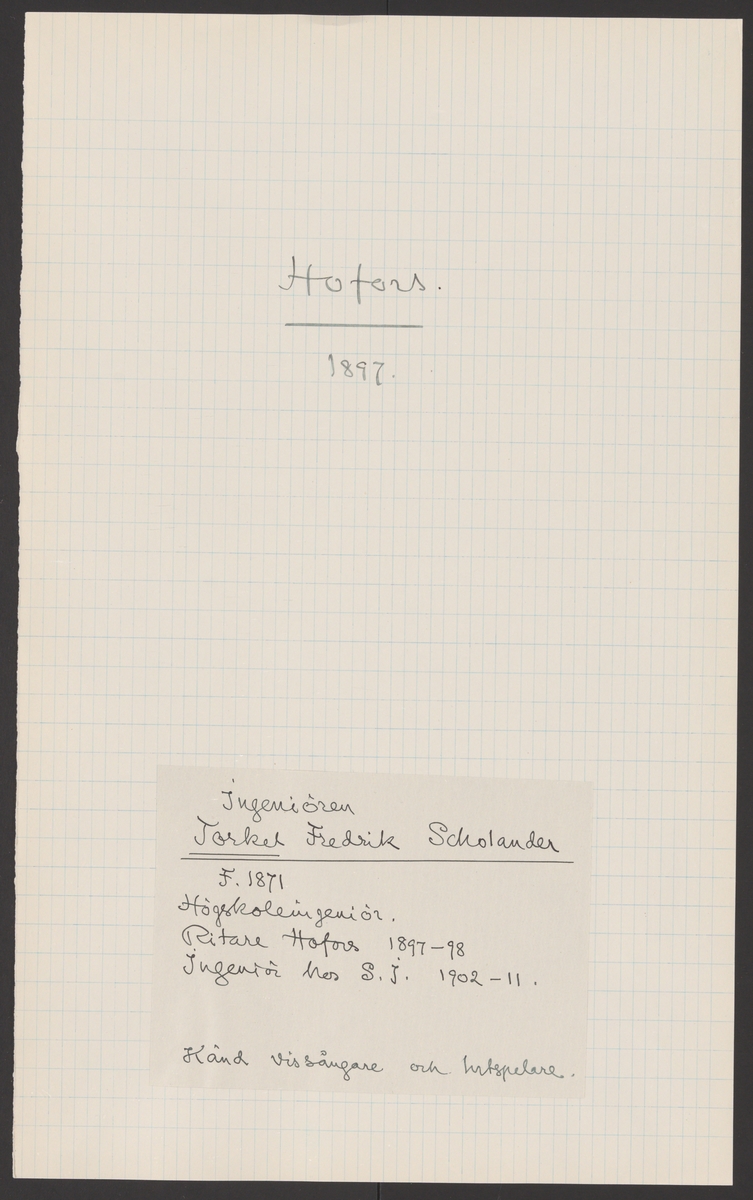 Hofors.
1897.
Ingeniören
Torkel Fredrik Scholander
F. 1871
Högskoleingeniör.
Ritare Hofors 1897-98
Ingeniör hos S.J. 1902-11.
Känd vissångare och lutspelare.